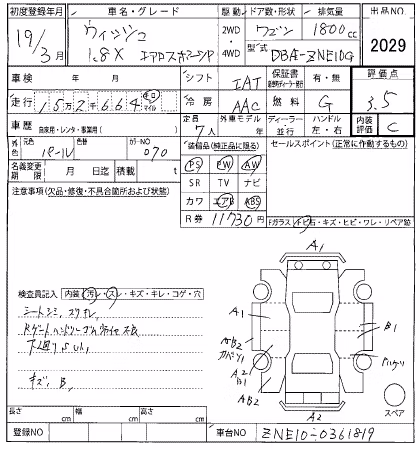 初度登録年月 車名・グレード 駆動 ドア数・形状 排気量 出品NO
19/3月 ウィッシュ 2WD ワゴン 1800cc 2029
1.8X エアロスポーツP 4WD 型式 DBA-ZNE10G
車検 年 月 シフト IAT 保証書 有・無 評価点
走行 152千664 キロ マイル 冷房 AAC 燃料 G 3.5
車歴 自家用・レンタ・事業用( ) 定員 7人 外車モデル 年 ディーラー 並行 ハンドル 左・右 内装評価 C
外色 元色 パール 色替 カラーNO 070 装備品(純正品に限る) セールスポイント(正常に作動するもの)
PS PW AW
名義変更期限 月 日迄 積載 t SR TV ナビ
注意事項(欠品・修復・不具合箇所および状態) カワ エアB ABS
R券 11730円 Fガラス トビ石・キズ・ヒビ・ワレ・リペア跡
A1
検査員記入 内装 汚レ・スレ・キズ・キレ・コゲ・穴
シートシミ、スリキレ
A1
B1
AB2
A2
B1
AB2
A2
キズ、B、
スペア
長さ cm 幅 cm 高さ cm
登録NO 車台NO ZNE10-0361819